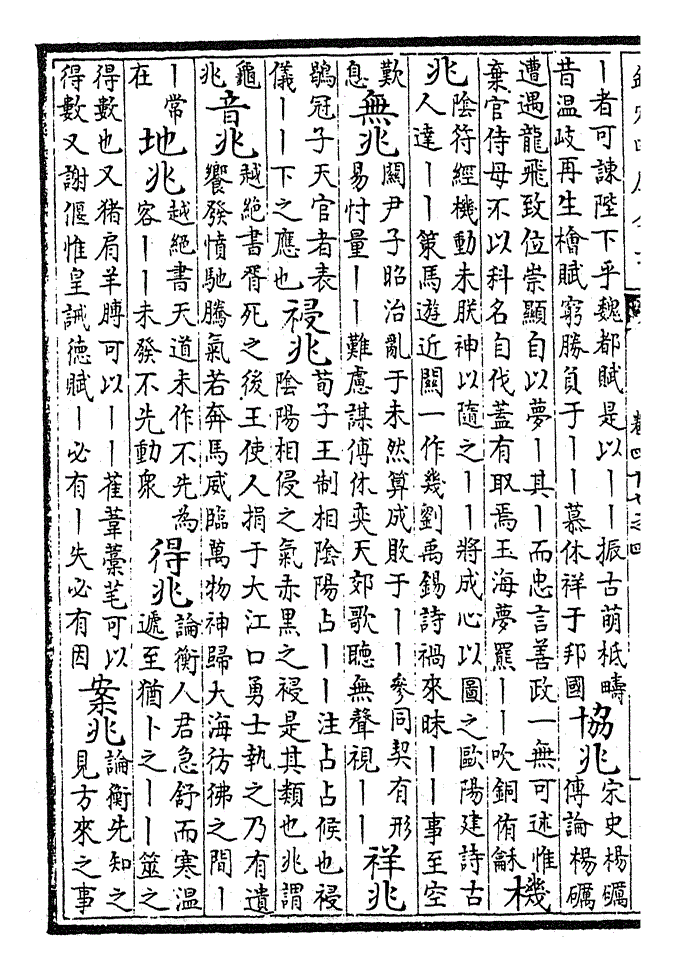 卷四十七之四
丨者可諫陛下乎魏都賦是以丨丨振古萌柢疇
昔温岐再生檜賦窮勝負于丨丨慕休祥于邦國
協兆
宋史楊礪
傳論楊礪
遭遇龍飛致位崇顯自以夢丨其丨而忠言善政一無可述惟
棄官侍母不以科名自伐蓋有取焉玉海夢羆丨丨吹銅侑龢
機
兆
陰符經機動未朕神以隨之丨丨將成心以圖之歐陽建詩古
人達丨丨策馬遊近關一作幾劉禹錫詩禍來昧丨丨事至空
歎
息
無兆
關尹子昭治亂于未然算成敗于丨丨參同契有形
易忖量丨丨難慮謀傅休奕天郊歌聽無聲視丨丨
祥兆
鶡冠子天官者表
儀丨丨下之應也
祲兆
荀子王制相陰陽占丨丨注占占候也祲
陰陽相侵之氣赤黑之祲是其類也兆謂
龜
兆
音兆
越絶書胥死之後王使人捐于大江口勇士執之乃有遺
饗發憤馳騰氣若奔馬威臨萬物神歸大海彷彿之間丨
丨常
在
地兆
越絶書天道未作不先為
客丨丨未發不先動衆
得兆
論衡人君急舒而寒温
遞至猶卜之丨丨筮之
得數也又猪肩羊膊可以丨丨雚葦藁芼可以
得數又謝偃惟皇誡德賦丨必有丨失必有因
案兆
論衡先知之
見方來之事